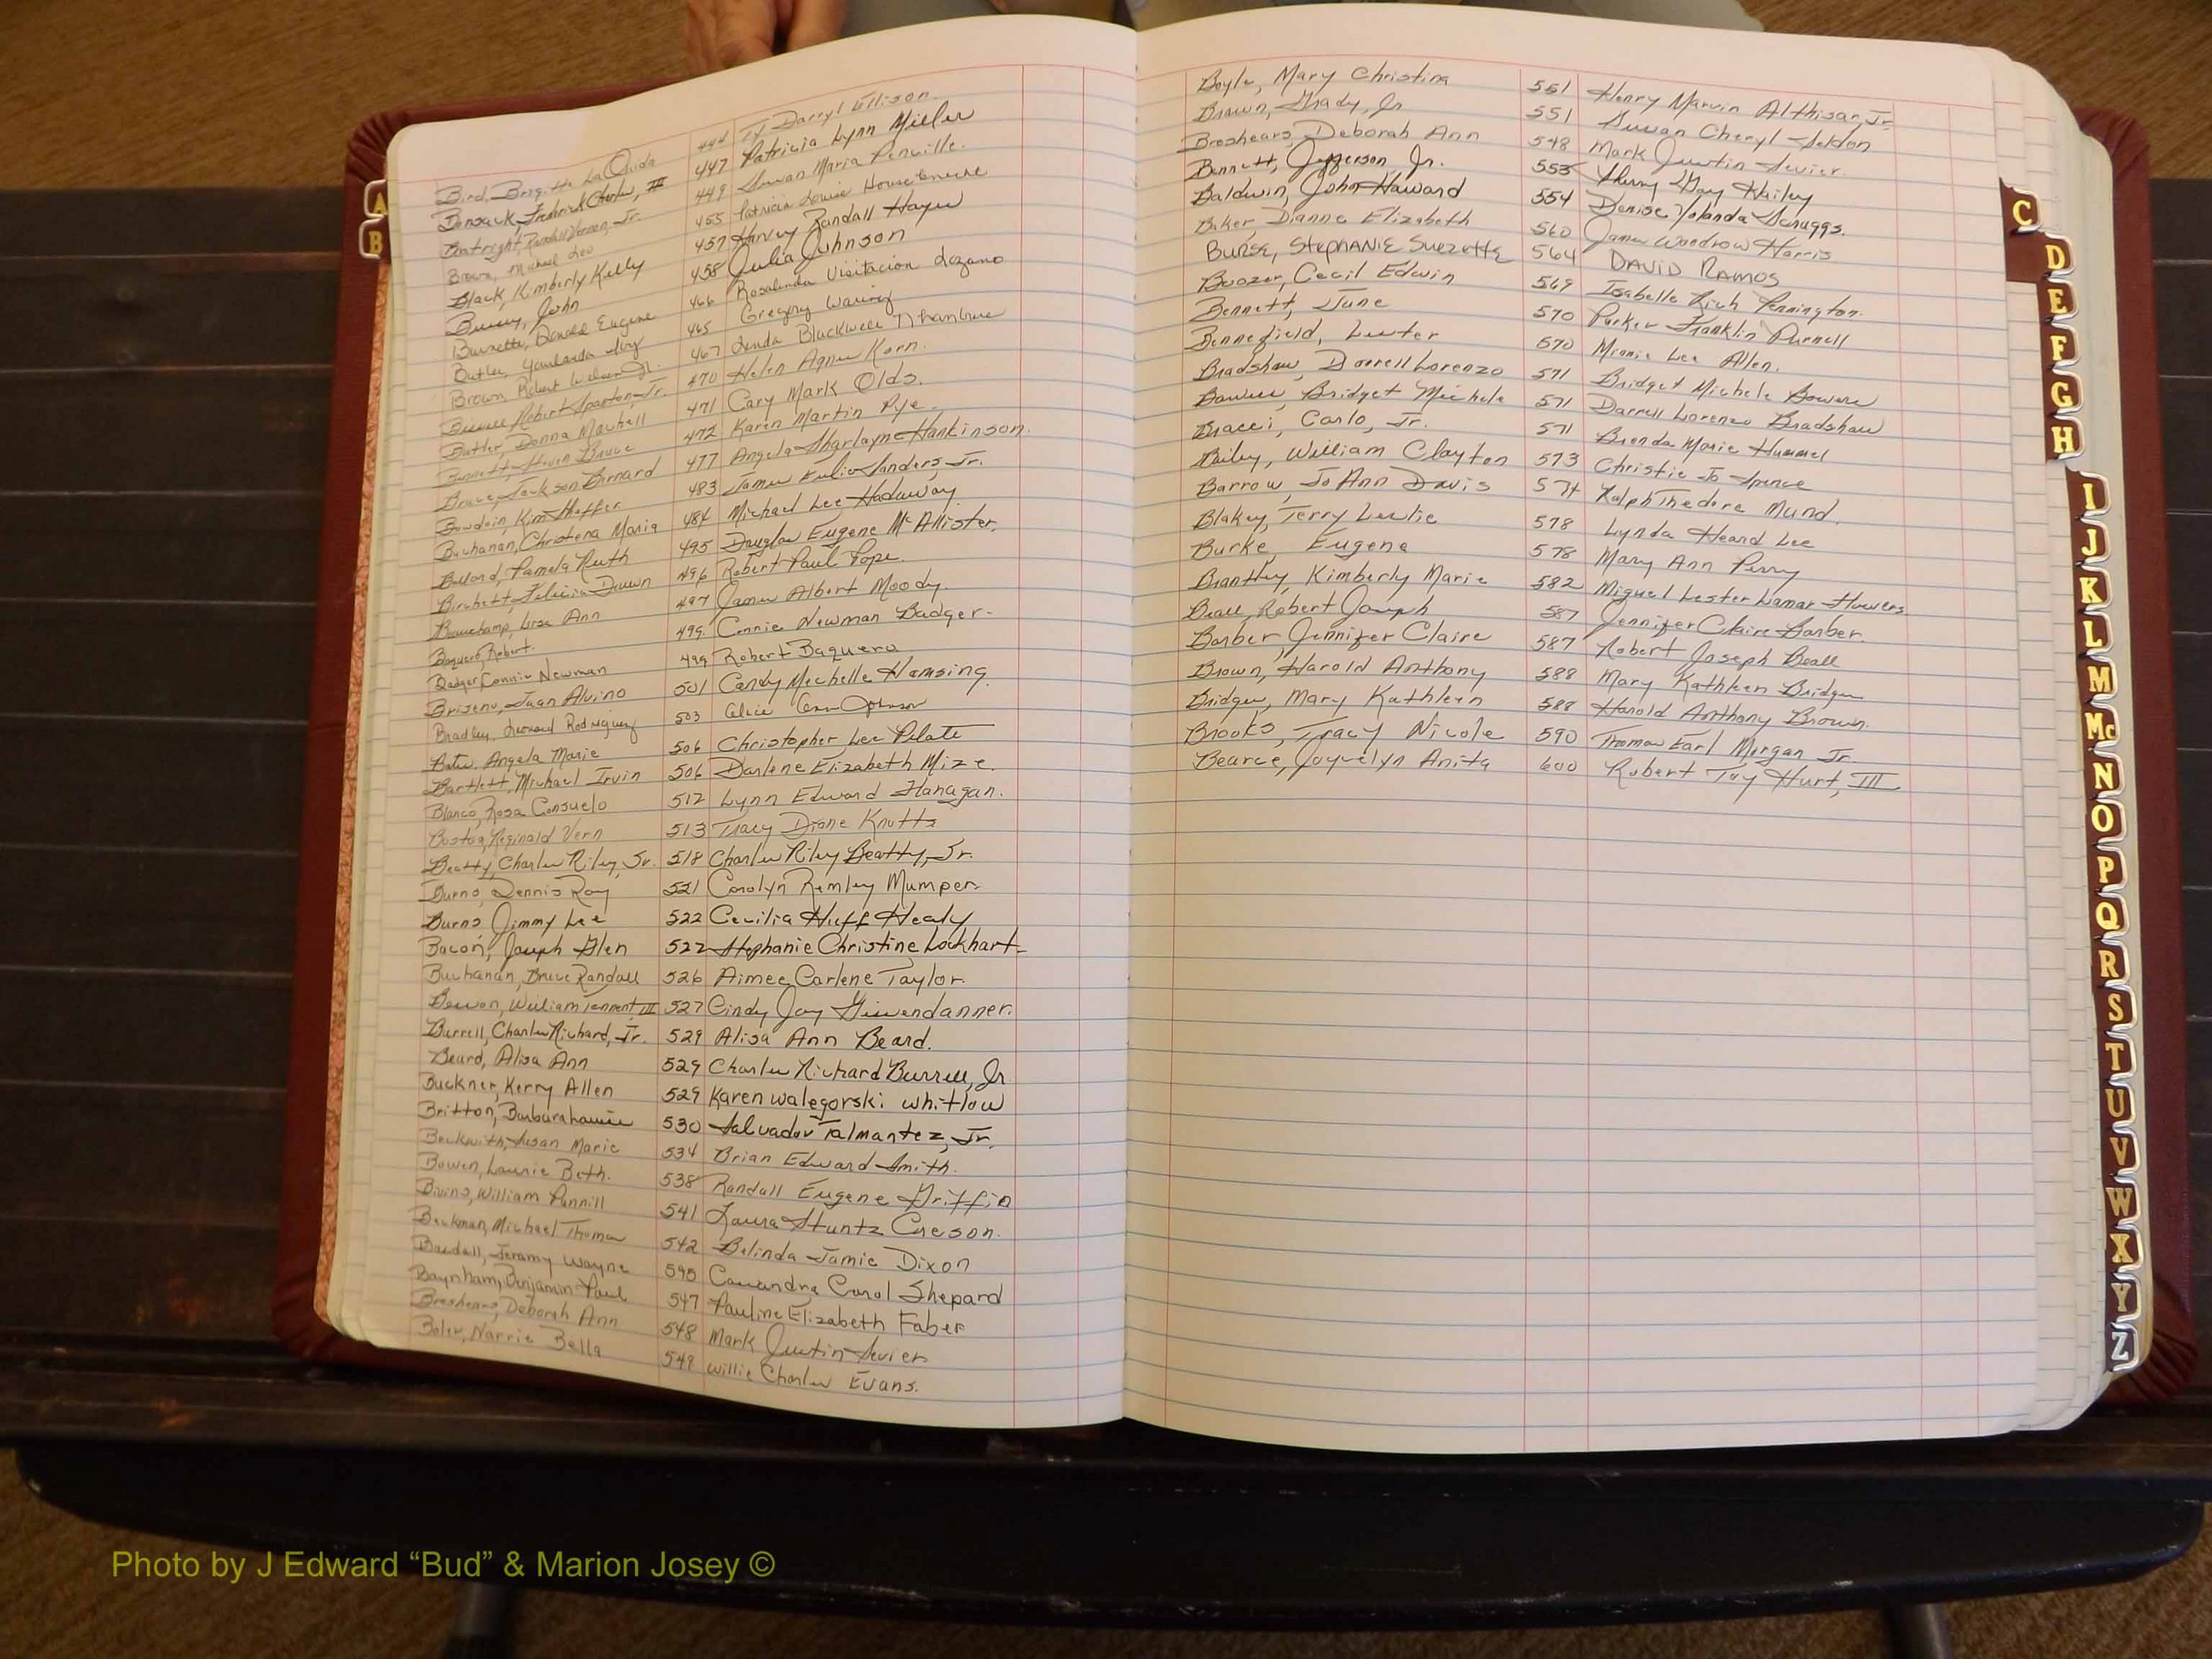 Bird, Brigitte LaQuida 444 Ty Darryl Ellison
Bonsack, Frederick Charles, III 447 Patricia Lynn Miller
Boatright, Randall Vernon, Jr. 449 Susan Maria Penville.
Brown, Michael Leo 455 Patricia Louise
Black, Kimberly Kelly 457 Harvey Randall Hayes
Bussey, John 458 Julia Johnson
Burnette, Donald Eugene 466 Rosalinda Visitacion Lozano
Butler, Yaulanda Joy 465 Gregory Waring
Brown, Robert Wilson Jr. 467 Linda Blackwell
Robert Spartan, Jr. 470 Helen Agnes Korn.
Butler, Donna 471 Cary Mark Olds.
Bennett, Steven Bruce 472 Karen Martin Pye
Bruce, Jackson Bernard 477 Angela Sharlayne Hankinson.
Bowdoin, Kim Shaffer 483 James Sanders, Jr.
Buchanan, Christena Maria 484 Michael Lee Hadaway
Bullard, Pamela Ruth 495 Douglas Eugene McAllister.
Birchett, Felicia Dawn 496 Robert Paul Pope.
Beauchamp, Lisa Ann 497 James Albert Moody.
Baquero, Robert. 499. Connie Newman Badger.
Badger, Connie Newman 499 Robert Baquero
Briseno, Juan Alvino 501 Candy Mechelle Hamsing
Bradley, Leonard Rodriguez 503 Alice Ann Johnson
Bates, Angela Marie 506 Christopher Lee Pilate
Bartlett, Michael Irvin 506 Darlene Elizabeth Mize.
Blanco, Rosa Consuelo 512 Lynn Edward Flanagan.
Bostog, Reginald Vern 513 Tracy Diane Knotts
Beatty, Charles Riley, Jr. 518 Charles Riley Beatty, Jr.
Burns, Dennis Ray 521 Carolyn Remley Mumper
Burns, Jimmy Lee 522 Cecilia Huff Healy
Bacon, Joseph Glen 522 Stephanie Christine Lockhart
Buchanan, Bruce Randall 526 Aimee Carlene Taylor.
William Tennent, III 527 Cindy Joy Giwendanner.
Burrell, Charles Richard, Jr. 529 Alisa Ann Beard.
Beard, Alisa Ann 529 Charles Richard Burrell, Jr
Buckner, Kerry Allen 529 Karen Walegorski Whitlow
Britton, Barbara Laurie 530 Salvador Talmantez, Jr.
Beckwith, Susan Marie 534 Brian Edward Smith.
Bowen, Laurie Beth. 538 Randall Eugene Griffin
Bivins, William Pannill 541 Laura Stuntz Creson.
Beckman, Michael Thomas 542 Belinda Jamie Dixon
Jeramy Wayne 545 Cassandra Carol Shepard
Baynham, Benjamin Paul 547 Pauline Elizabeth Faber
Breshears, Deborah Ann 548 Mark Justin Sevier
Boler, Narrie Bella 549 Willie Charles Evans.
Boyle, Mary Christina 551 Henry Marvin Althisar, Jr.
Brown, Grady, Jr 551 Susan Cheryl Seldon
Breshears, Deborah Ann 548 Mark Justin Sevier.
Bennett, Jefferson Jr. 553 Sherry Gay Hailey
Baldwin, John Howard 554 Denise Yolanda Scruggs.
Baker, Dianne Elizabeth 560 James Woodrow Harris
Burse, Stephanie Suezette 564 David Ramos
Boozer, Cecil Edwin 569 Isabelle Rich Pennington.
Bennett, June 570 Parker Franklin Purnell
Bennefield, Lester 570 Minnie Lee Allen.
Bradshaw, Darrell Lorenzo 571 Bridget Michele Bowers
Bowers, Bridget Michele 571 Darrell Lorenzo Bradshaw
Bracci, Carlo, Jr. 571 Brenda Marie Hummel
Bailey, William Clayton 573 Christie Jo Spence
Barrow, JoAnn Davis 574 Ralph Thedore Mund.
Blakey, Terry Leslie 578 Lynda Heard Lee
Burke, Eugene 578 Mary Ann Perry
Brantley, Kimberly Marie 582 Miguel Lester Lamar Flowers
Beall, Robert Joseph 587 Jennifer Claire Barber.
Barber, Jennifer Claire 587 Robert Joseph Beall
Brown, Harold Anthony 588 Mary Kathleen Bridges
Bridges, Mary Kathleen 588 Harold Anthony Brown.
Brooks, Tracy Nicole 590 Thomas Earl Morgan Jr.
Bearce, Joquelyn Anita 600 Robert Toy Hurt, III
A
B
C
D
E
F
G
H
I
J
K
L
M
Mc
N
O
P
Q
R
S
T
U
V
W
X
Y
Z
Photo by J Edward “Bud” & Marion Josey ©